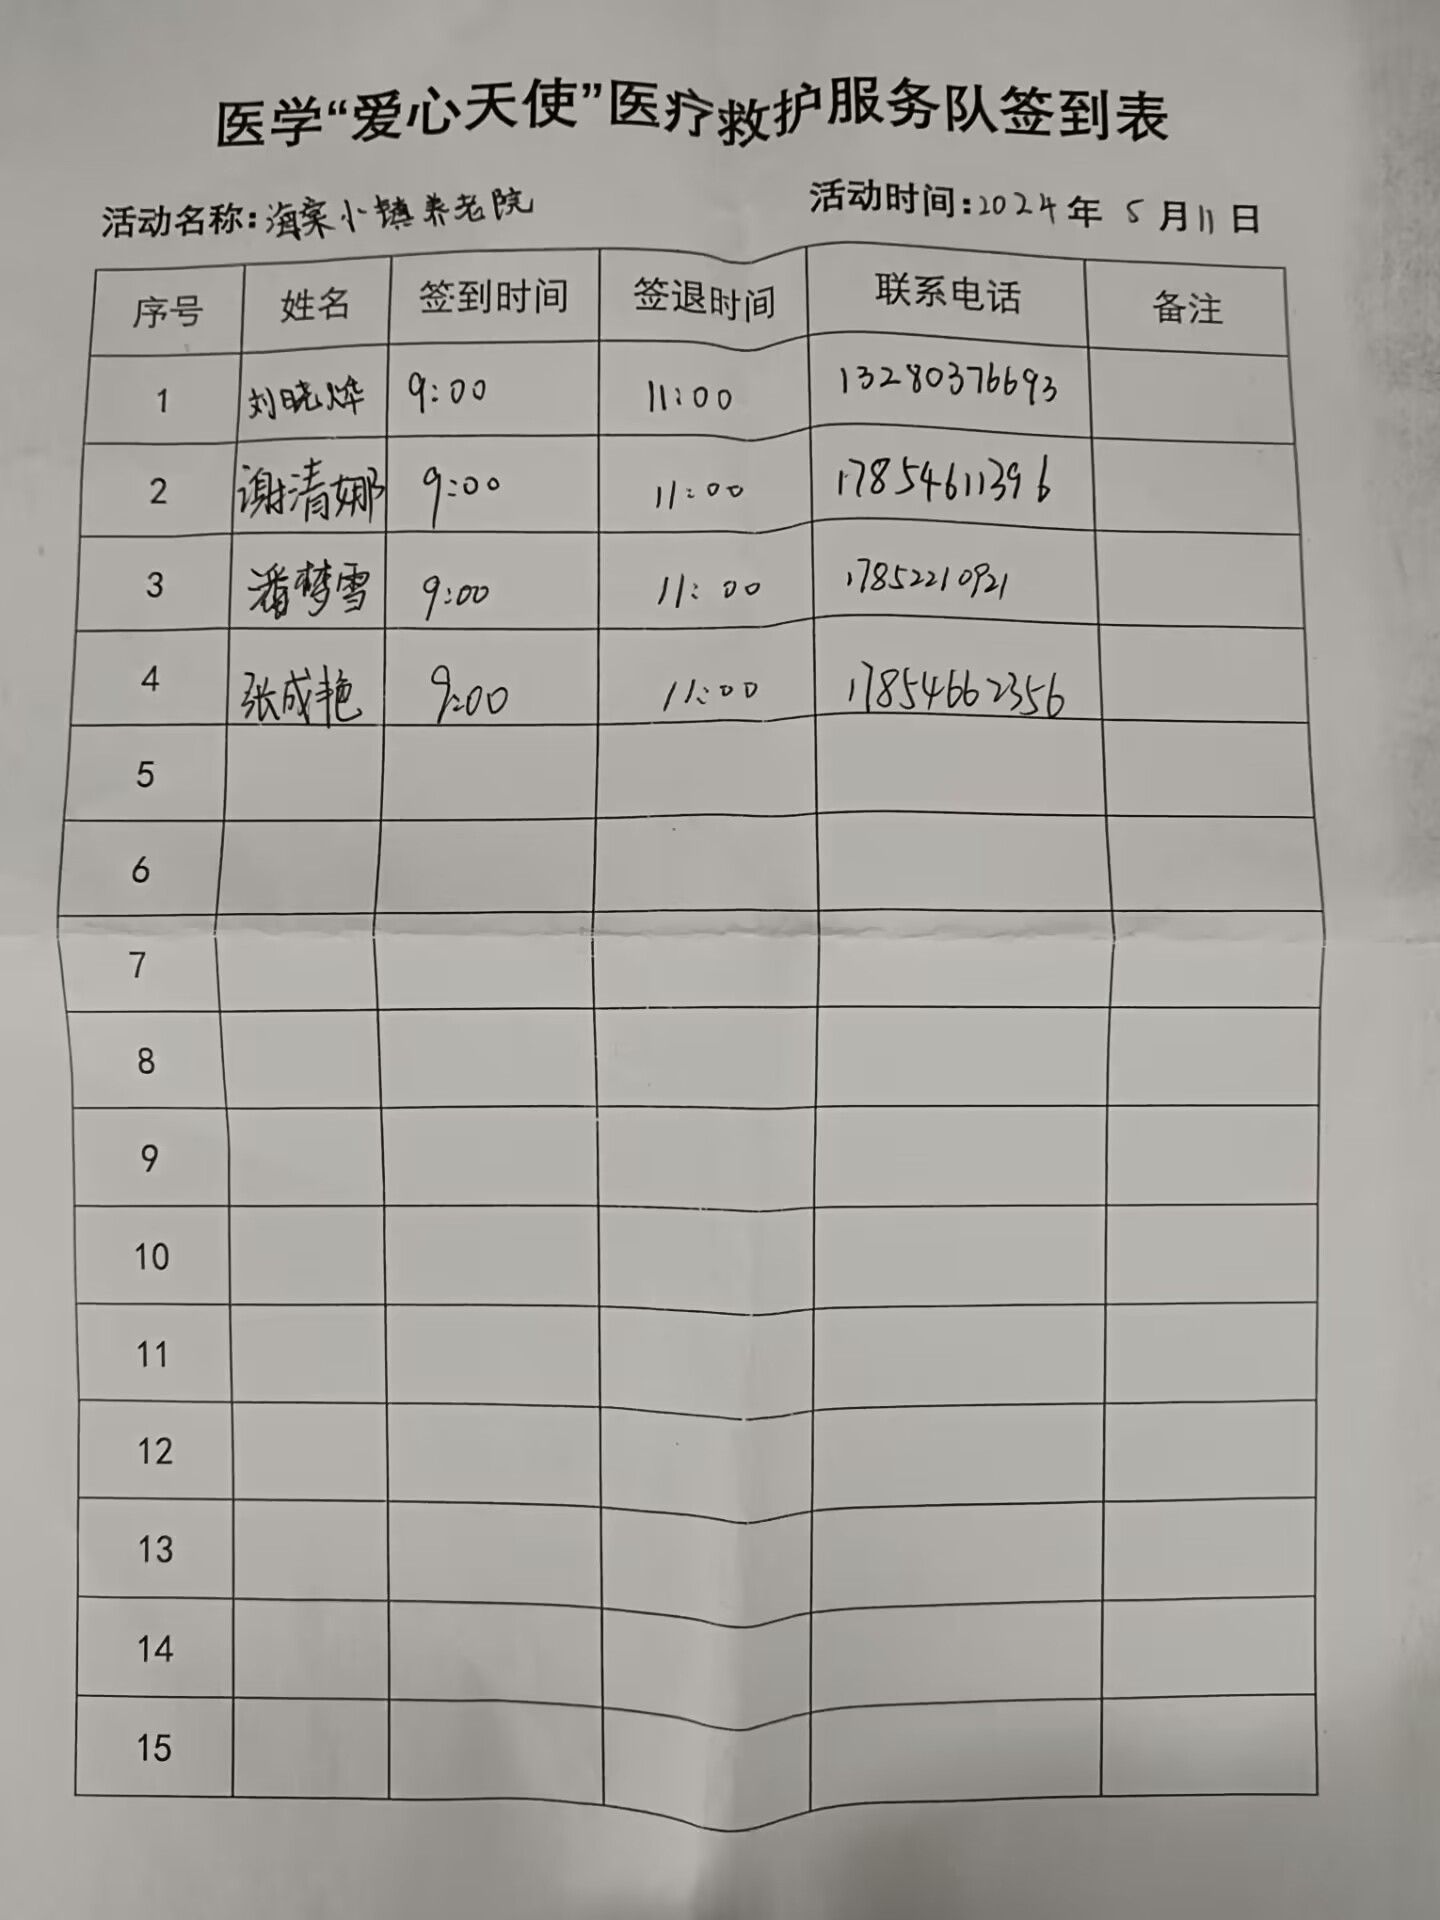 医学“爱心天使”医疗救护服务队签到表
活动名称:海棠小镇养老院 活动时间:2024年5月11日
序号 姓名 签到时间 签退时间 联系电话 备注
1 刘晓烨 9:00 11:00 13280376693
2 谢清娜 9:00 11:00 17854611396
3 潘梦雪 9:00 11:00 17852210921
4 张成艳 9:00 11:00 17854662356
5
6
7
8
9
10
11
12
13
14
15